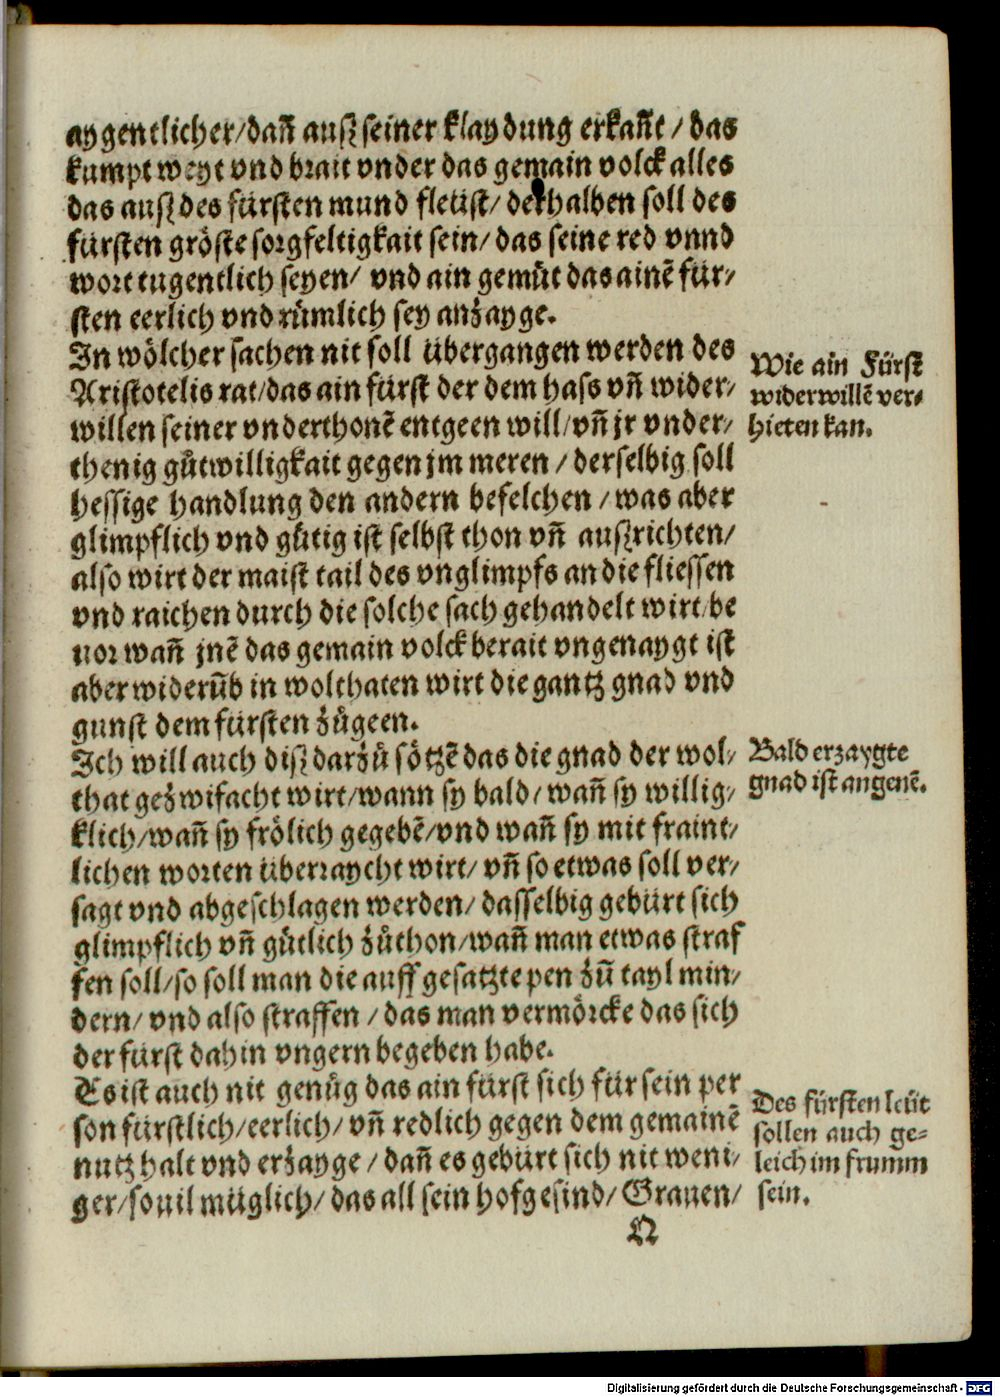 aygentlicher/dañ ausz seiner klaydung erkañt / das
kumpt weyt vnd brait vnder das gemain volck alles
das ausz des fürsten mund fleüst/ derhalben soll des
fürsten gröste sorgfeltigkait sein/ das seine red vnnd
wort tugentlich seyen/ vnd ain gemůt das ainē für/
sten eerlich vnd růmlich sey anzayge.
In wölcher sachen nit soll übergangen werden des
Aristotelis rat/das ain fürst der dem hass vñ wider/
willen seiner vnderthonē entgeen will/vñ jr vnder/
thenig gůtwilligkait gegen jm meren / derselbig soll
hessige handlung den andern befelchen / was aber
glimpflich vnd gůtig ist selbst thon vñ auszrichten/
also wirt der maist tail des vnglimpfs an die fliessen
vnd raichen durch die solche sach gehandelt wirt/be
uor wañ jnē das gemain volck berait vngenaygt ist
aber widerūb in wolthaten wirt die gantz gnad vnd
gunst dem fürsten zůgeen.
Ich will auch disz darzů sötzē das die gnad der wol/
that gezwifacht wirt/wann sy bald/ wañ sy willig/
klich/wañ sy frölich gegebē/vnd wañ sy mit fraint/
lichen worten überraycht wirt/ vñ so etwas soll ver/
sagt vnd abgeschlagen werden/ dasselbig gebürt sich
glimpflich vñ gůtlich zůthon/wañ man etwas straf
fen soll/so soll man die auff gesatzte pen zů tayl min/
dern/ vnd also straffen / das man vermörcke das sich
der fürst dahin vngern begeben habe.
Es ist auch nit genůg das ain fürst sich für sein per
son fürstlich/eerlich/ vñ redlich gegen dem gemainē
nutz halt vnd erzayge / dañ es gebürt sich nit weni/
ger/souil müglich/ das all sein hofgesind/ Grauen/
N
Wie ain Fürst
widerwillē ver/
hieten kan.
Bald erzaygte
gnad ist angenē.
Des fürsten leüt
sollen auch ge=
leich im frumm
sein.
Digitalisierung gefördert durch die Deutsche Forschungsgemeinschaft - DFG